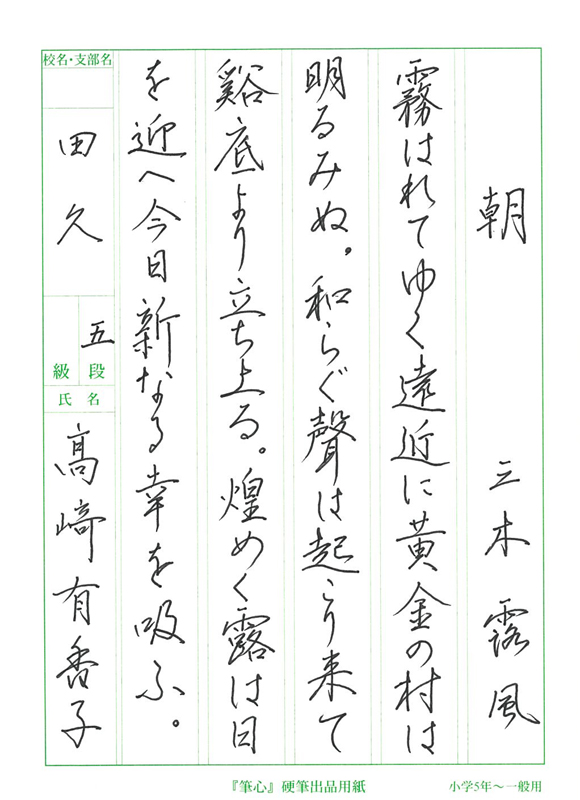 朝　三木露風
霧はれてゆく遠近に黄金の村は
明るみぬ。和らぐ聲は起こり来て
谿底より立ち上る。煌めく露は日
を迎へ今日新なる幸を吸ふ。
校名・支部名
田久
五
段
級
氏名
髙﨑有香子
『筆心』硬筆出品用紙
小学5年～一般用